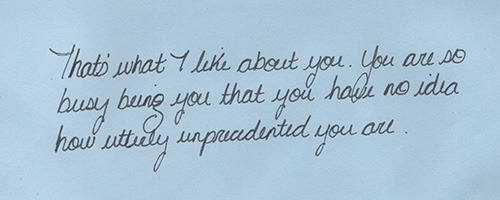 Thats what I like about you. You are so
busy being you that you have no idea
how utterly unprecedented you are.